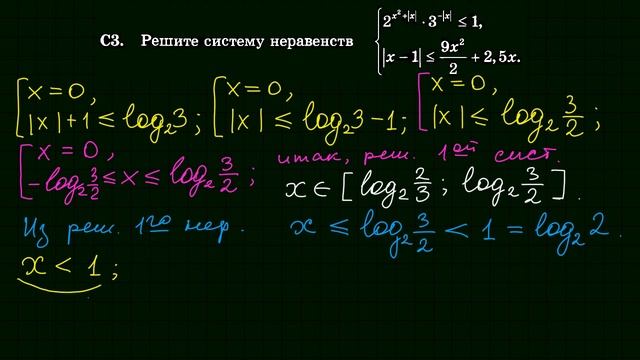 С3. Решите систему неравенств { 2^{x²+|x|} · 3^{−|x|} ≤ 1,
|x − 1| ≤ 9x²/2 + 2,5x.
[ x = 0, |x| + 1 ≤ log₂3 ; [ x = 0, |x| ≤ log₂3 − 1 ; [ x = 0, |x| ≤ log₂ 3/2 ;
[ x = 0, −log₂ 3/2 ≤ x ≤ log₂ 3/2 ; итак, реш. 1ой сист.
x ∈ [ log₂ 2/3 ; log₂ 3/2 ] .
Из реш. 1го нер. x ≤ log₂ 3/2 < 1 = log₂ 2 .
x < 1 ;